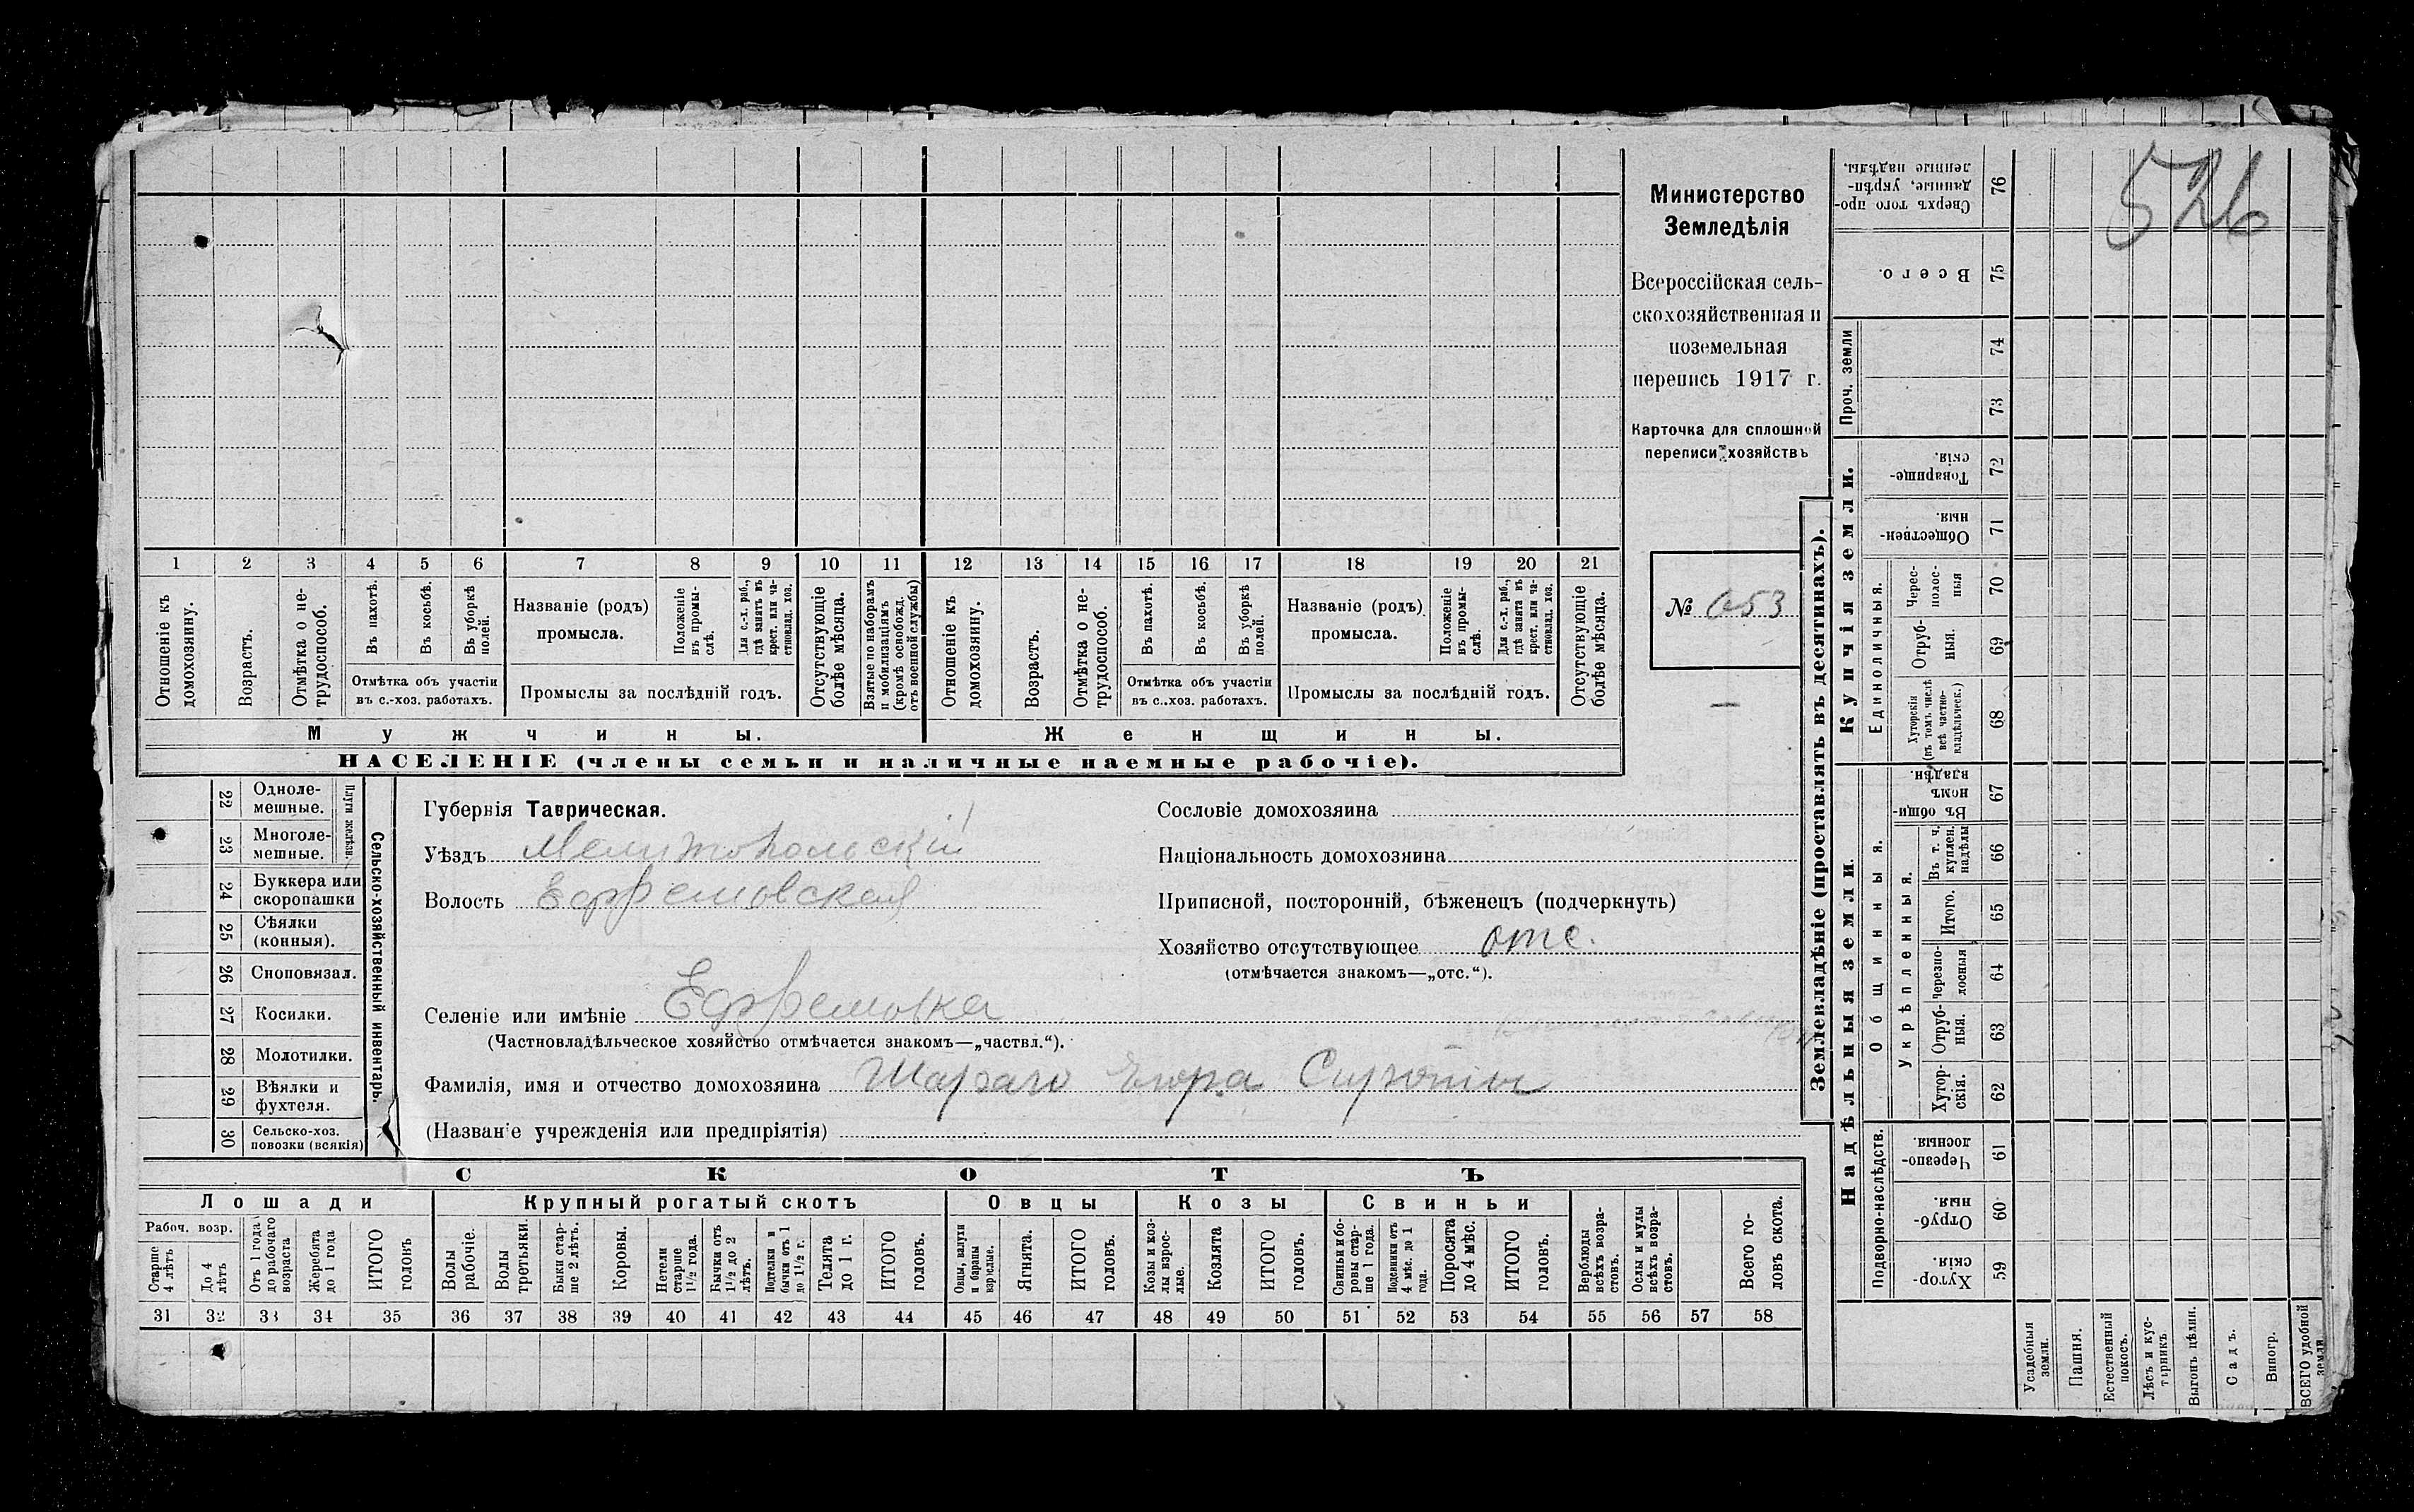 526
Министерство
Земледѣлія
Всероссійская сель-
скохозяйственная и
поземельная
перепись 1917 г.
Карточка для сплошной
переписи хозяйствъ
№ 653
1 2 3 4 5 6 7 8 9 10 11 12 13 14 15 16 17 18 19 20 21
Отношеніе къ домохозяину.
Возрастъ.
Отмѣтка о не-трудоспособ.
Въ пахотѣ.
Въ косьбѣ.
Въ уборкѣ полей.
Отмѣтка объ участіи
въ с.-хоз. работахъ.
Названіе (родъ)
промысла.
Положеніе въ промы-слѣ.
Для с.-х. раб., гдѣ занятъ въ крест. или ча-стновлад. хоз.
Промыслы за послѣдній годъ.
Отсутствующіе болѣе мѣсяца.
Взятые по наборамъ и мобилизаціямъ (кромѣ освобожд. отъ военной службы)
Отношеніе къ домохозяину.
Возрастъ.
Отмѣтка о не-трудоспособ.
Въ пахотѣ.
Въ косьбѣ.
Въ уборкѣ полей.
Отмѣтка объ участіи
въ с..хоз. работахъ.
Названіе (родъ)
промысла.
Положеніе въ промы-слѣ.
Для с.-х. раб., гдѣ занята въ крест. или ча-стновлад. хоз.
Промыслы за послѣдній годъ.
Отсутствующіе болѣе мѣсяца.
Мужчины.
Женщины.
НАСЕЛЕНІЕ (члены семьи и наличные наемные рабочіе).
22 Одноле-мешные.
23 Многоле-мешные.
Плуги желѣзн.
24 Буккера или скоропашки
25 Сѣялки (конныя).
26 Сноповязал.
27 Косилки.
28 Молотилки.
29 Вѣялки и фухтеля.
30 Сельско-хоз. повозки (всякія)
Сельско-хозяйственный инвентарь.
Губернія Таврическая.
Уѣздъ Мелитопольскій
Волость Ефремовская
Селеніе или имѣніе Ефремовка
(Частновладѣльческое хозяйство отмѣчается знакомъ—„частвл.“).
Фамилія, имя и отчество домохозяина
(Названіе учрежденія или предпріятія)
Сословіе домохозяина
Національность домохозяина
Приписной, посторонній, бѣженецъ (подчеркнуть)
Хозяйство отсутствующее отс.
(отмѣчается знакомъ—„отс.“).
СКОТЪ
Лошади
Крупный рогатый скотъ
Овцы
Козы
Свиньи
Рабоч. возр.
Старше 4 лѣтъ
До 4 лѣтъ
Отъ 1 года до рабочаго возраста
Жеребята до 1 года
ИТОГО головъ
Волы рабочіе.
Волы третьяки.
Быки стар-ше 2 лѣтъ.
Коровы.
Нетели старше 1½ года.
Бычки отъ 1½ до 2 лѣтъ.
Подтелки и бычки отъ 1 до 1½ г.
Телята до 1 г.
ИТОГО головъ.
Овцы, валухи и бараны взрослые.
Ягнята.
ИТОГО головъ.
Козы и коз-лы взрос-лые.
Козлята
ИТОГО головъ.
Свиньи и бо-ровы стар-ше 1 года.
Подсвинки отъ 4 мѣс. до 1 года.
Поросята до 4 мѣс.
ИТОГО головъ.
Верблюды всѣхъ возра-стовъ.
Ослы и мулы всѣхъ возра-стовъ.
Всего го-ловъ скота.
31 32 33 34 35 36 37 38 39 40 41 42 43 44 45 46 47 48 49 50 51 52 53 54 55 56 57 58
Землевладѣніе (проставлять въ десятинахъ).
Надѣльныя земли.
Купчія земли.
Проч. земли
Подворно-наслѣдств.
Общинныя.
Укрѣпленныя.
Единоличныя.
Хутор-скія. 59
Отруб-ныя. 60
Черезпо-лосныя. 61
Хутор-скія. 62
Отруб-ныя. 63
Черезпо-лосныя 64
Итого. 65
Въ т. ч. куплен. надѣлы 66
Въ общи-номъ владѣн. 67
Хуторскія (въ томъ числѣ всѣ частно-владѣльчек.) 68
Отруб-ныя. 69
Черес-полос-ныя 70
Обществен-ныя. 71
Товарище-скія. 72
73
74
Всего. 75
Сверхъ того про-данные, укрѣп-ленные надѣлы. 76
Усадебныя земли.
Пашня.
Естественный покосъ.
Лѣсъ и кус-тарникъ.
Выгонъ цѣлин.
Садъ.
Виногр.
ВСЕГО удобной земли